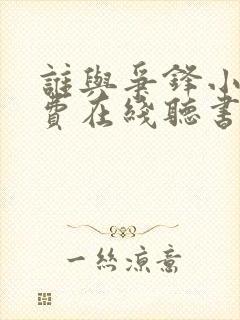 誰與爭鋒小
費在綫聽書
一絲涼意